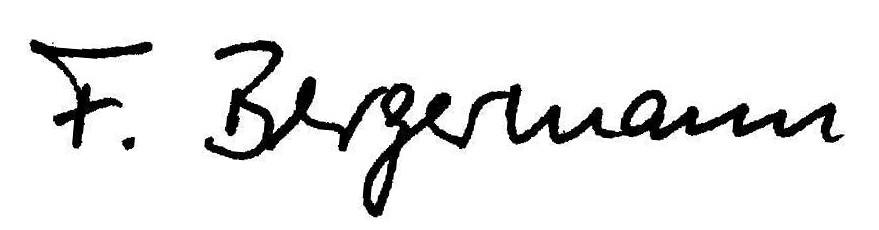 F. Bergermann